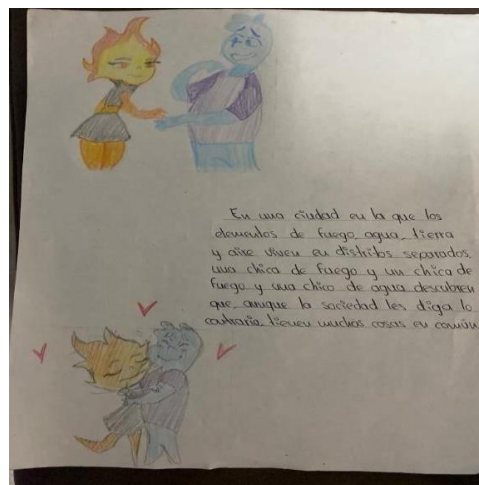 En una ciudad en la que los
elementos de fuego, agua, tierra
y aire viven en distritos separados
una chica de fuego y un chica de
fuego y una chico de agua descubren
que, aunque la sociedad les diga lo
contrario, tienen muchos cosas en común